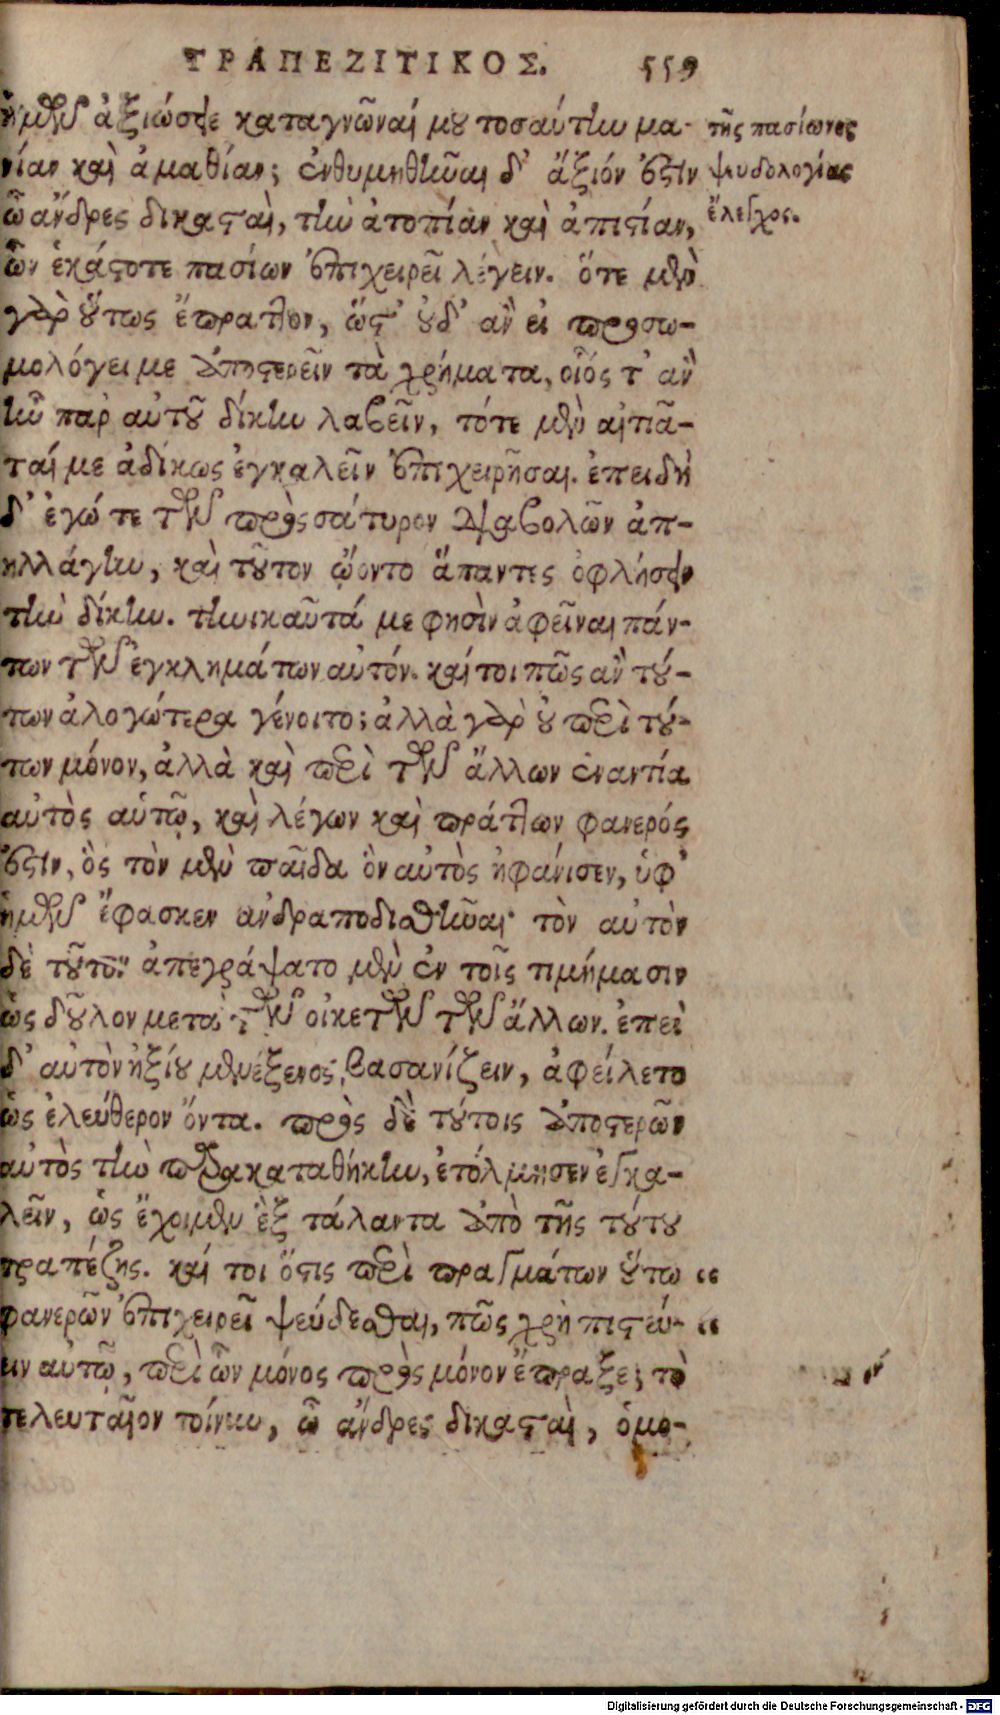 ΤΡΑΠΕΖΙΤΙΚΟΣ. 559
ἡμῶν ἀξιώσειε καταγνῶναι μου τοσαύτην μα-
νίαν καὶ ἀμαθίαν; ἐνθυμηθῆναι δ' ἄξιόν ἐστιν
ὦ ἄνδρες δικασταὶ, τὴν ἀτοπίαν καὶ ἀπιστίαν,
ὧν ἑκάστοτε πασίων ἐπιχειρεῖ λέγειν. ὅτε μὲν
γὰρ οὕτως ἔπραττον, ὥστ' οὐδ' ἂν εἰ προσω-
μολόγει με ἀποστερεῖν τὰ χρήματα, οἷός τ' ἂν
ἦν παρ' αὐτοῦ δίκην λαβεῖν, τότε μὲν αἰτιᾶ-
ταί με ἀδίκως ἐγκαλεῖν ἐπιχειρῆσαι. ἐπειδὴ
δ' ἐγώ τε τῶν πρὸς σάτυρον διαβολῶν ἀπ-
ηλλάγην, καὶ τοῦτον ᾤοντο ἅπαντες ὀφλήσειν
τὴν δίκην. τηνικαῦτά με φησὶν ἀφεῖναι πάν-
των τῶν ἐγκλημάτων αὐτόν. καί τοι πῶς ἂν τού-
των ἀλογώτερα γένοιτο; ἀλλὰ γὰρ οὐ περὶ τού-
των μόνον, ἀλλὰ καὶ περὶ τῶν ἄλλων ἐναντία
αὐτὸς αὑτῷ, καὶ λέγων καὶ πράττων φανερός
ἐστιν, ὃς τὸν μὲν παῖδα ὃν αὐτὸς ἠφάνισεν, ὑφ'
ἡμῶν ἔφασκεν ἀνδραποδισθῆναι· τὸν αὐτὸν
δὲ τοῦτον ἀπεγράψατο μὲν ἐν τοῖς τιμήμασιν
ὡς δοῦλον μετὰ τῶν οἰκετῶν τῶν ἄλλων. ἐπεὶ
δ' αὐτὸν ἠξίου μενέξενος βασανίζειν, ἀφείλετο
ὡς ἐλεύθερον ὄντα. πρὸς δὲ τούτοις ἀποστερῶν
αὐτὸς τὴν παρακαταθήκην, ἐτόλμησεν ἐγκα-
λεῖν, ὡς ἔχοιμεν ἓξ τάλαντα ἀπὸ τῆς τούτου
τραπέζης. καί τοι ὅστις περὶ πραγμάτων οὕτω “
φανερῶν ἐπιχειρεῖ ψεύδεσθαι, πῶς χρὴ πιστεύ- “
ειν αὐτῷ, περὶ ὧν μόνος πρὸς μόνον ἔπραξε; τὸ
τελευταῖον τοίνυν, ὦ ἄνδρες δικασταὶ, ὁμο-
τῆς πασίωνος
ψευδολογίας
ἔλεγχος.
Digitalisierung gefördert durch die Deutsche Forschungsgemeinschaft - DFG